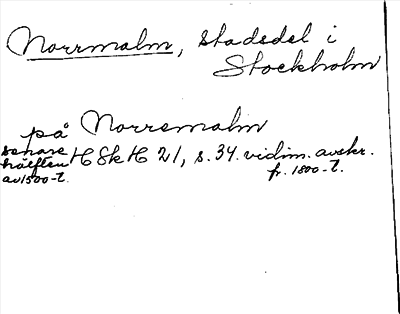 Norrmalm, stadsdel i
Stockholm
på Norremalm
senare
hälften HSkH 21, s. 34. vidim. avskr.
av 1500-t. fr. 1800-t.